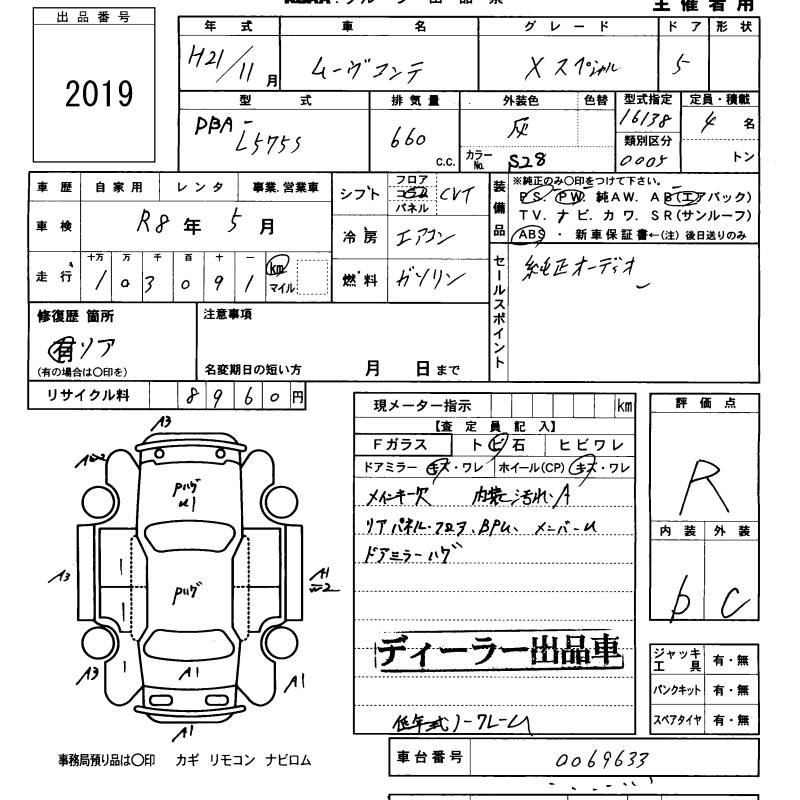 主催者用
出品番号
2019
年式 車名 グレード ドア 形状
H21/11月 ムーヴコンテ Xスペシャル 5
型式 排気量 外装色 色替 型式指定 定員・積載
DBA-L575S 660 c.c. 灰 16138 4名
カラーNo. S28 類別区分 0005 トン
車歴 自家用 レンタ 事業.営業車
車検 R8年5月
走行 十万 万 千 百 十 一
1 0 3 0 9 1 km マイル
シフト フロア コラム パネル CVT
冷房 エアコン
燃料 ガソリン
装備品 ※純正のみ〇印をつけて下さい。
PS. PW. 純AW. AB(エアバック)
TV. ナビ. カワ. SR(サンルーフ)
ABS ・ 新車保証書←(注)後日送りのみ
セールスポイント 純正オーディオ
修復歴 箇所
有 リア
(有の場合は〇印を)
注意事項
名変期日の短い方 月 日まで
リサイクル料 8960円
現メーター指示 km
【査定員記入】
Fガラス トビ石 ヒビワレ
ドアミラー キズ・ワレ ホイール(CP) キズ・ワレ
メインキー欠 内装に汚れ・A
リアパネル・フロア、BPU、メンバーU
ドアミラーハゲ
ディーラー出品車
低年式ノークレーム
評価点
R
内装 外装
b C
ジャッキ工具 有・無
パンクキット 有・無
スペアタイヤ 有・無
車台番号 0069633
A3
Pハゲ
U1
A3
A1
Pハゲ
A3
A1
A1
A1
事務局預り品は〇印 カギ リモコン ナビロム